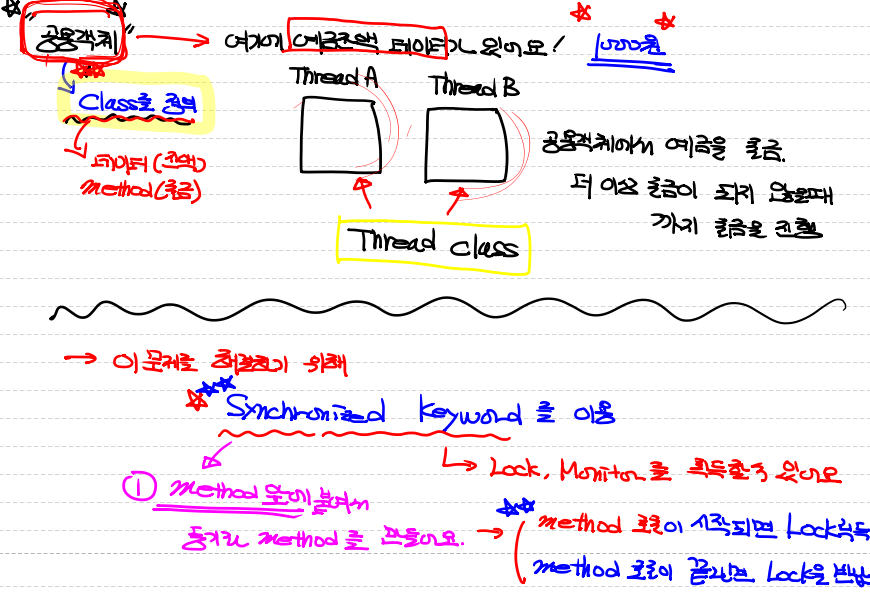 공용객체 → 여기에 예금잔액 데이터가 있어요! 1000원
Class로 존재
데이터(잔액)
method(출금)
Thread A
Thread B
공용객체에서 예금을 출금.
더 이상 출금이 되지 않을때
까지 출금을 진행
Thread Class
→ 이 문제를 해결하기 위해
Synchronized Keyword를 이용
Lock, Monitor를 획득할 수 있어요
① method 앞에 붙여서
동기화 method를 만들어요.
→ method 호출이 시작되면 Lock획득
method 호출이 끝나면 Lock을 반납